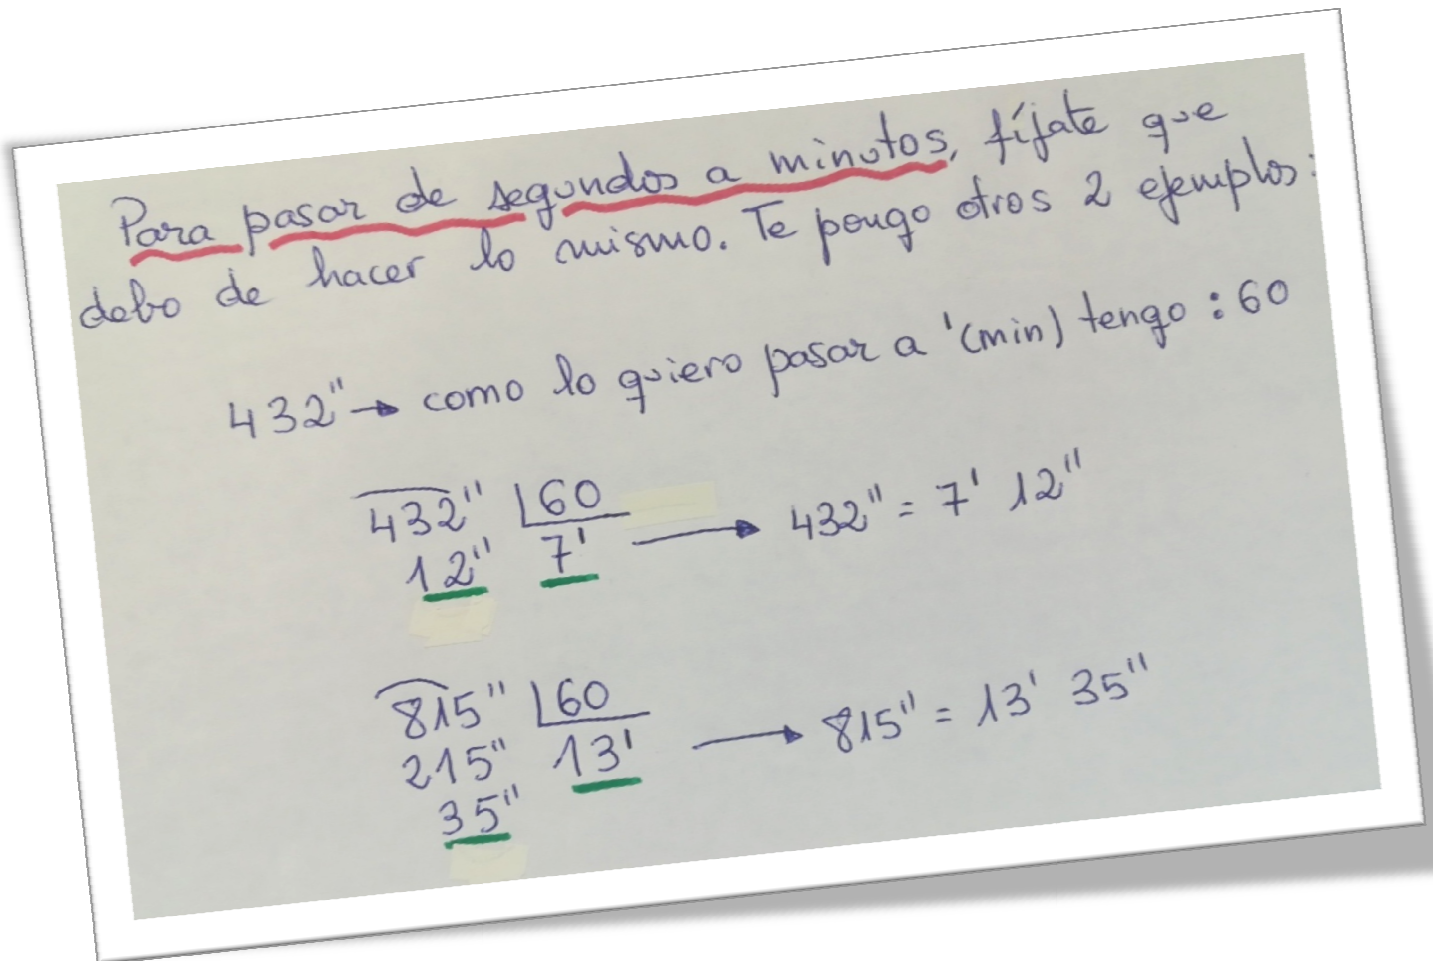 Para pasar de segundos a minutos, fíjate que
debo de hacer lo mismo. Te pongo otros 2 ejemplos:
432" → como lo quiero pasar a '(min) tengo : 60
432" 60
12" 7' → 432" = 7' 12"
815" 60
215" 13' → 815" = 13' 35"
35"